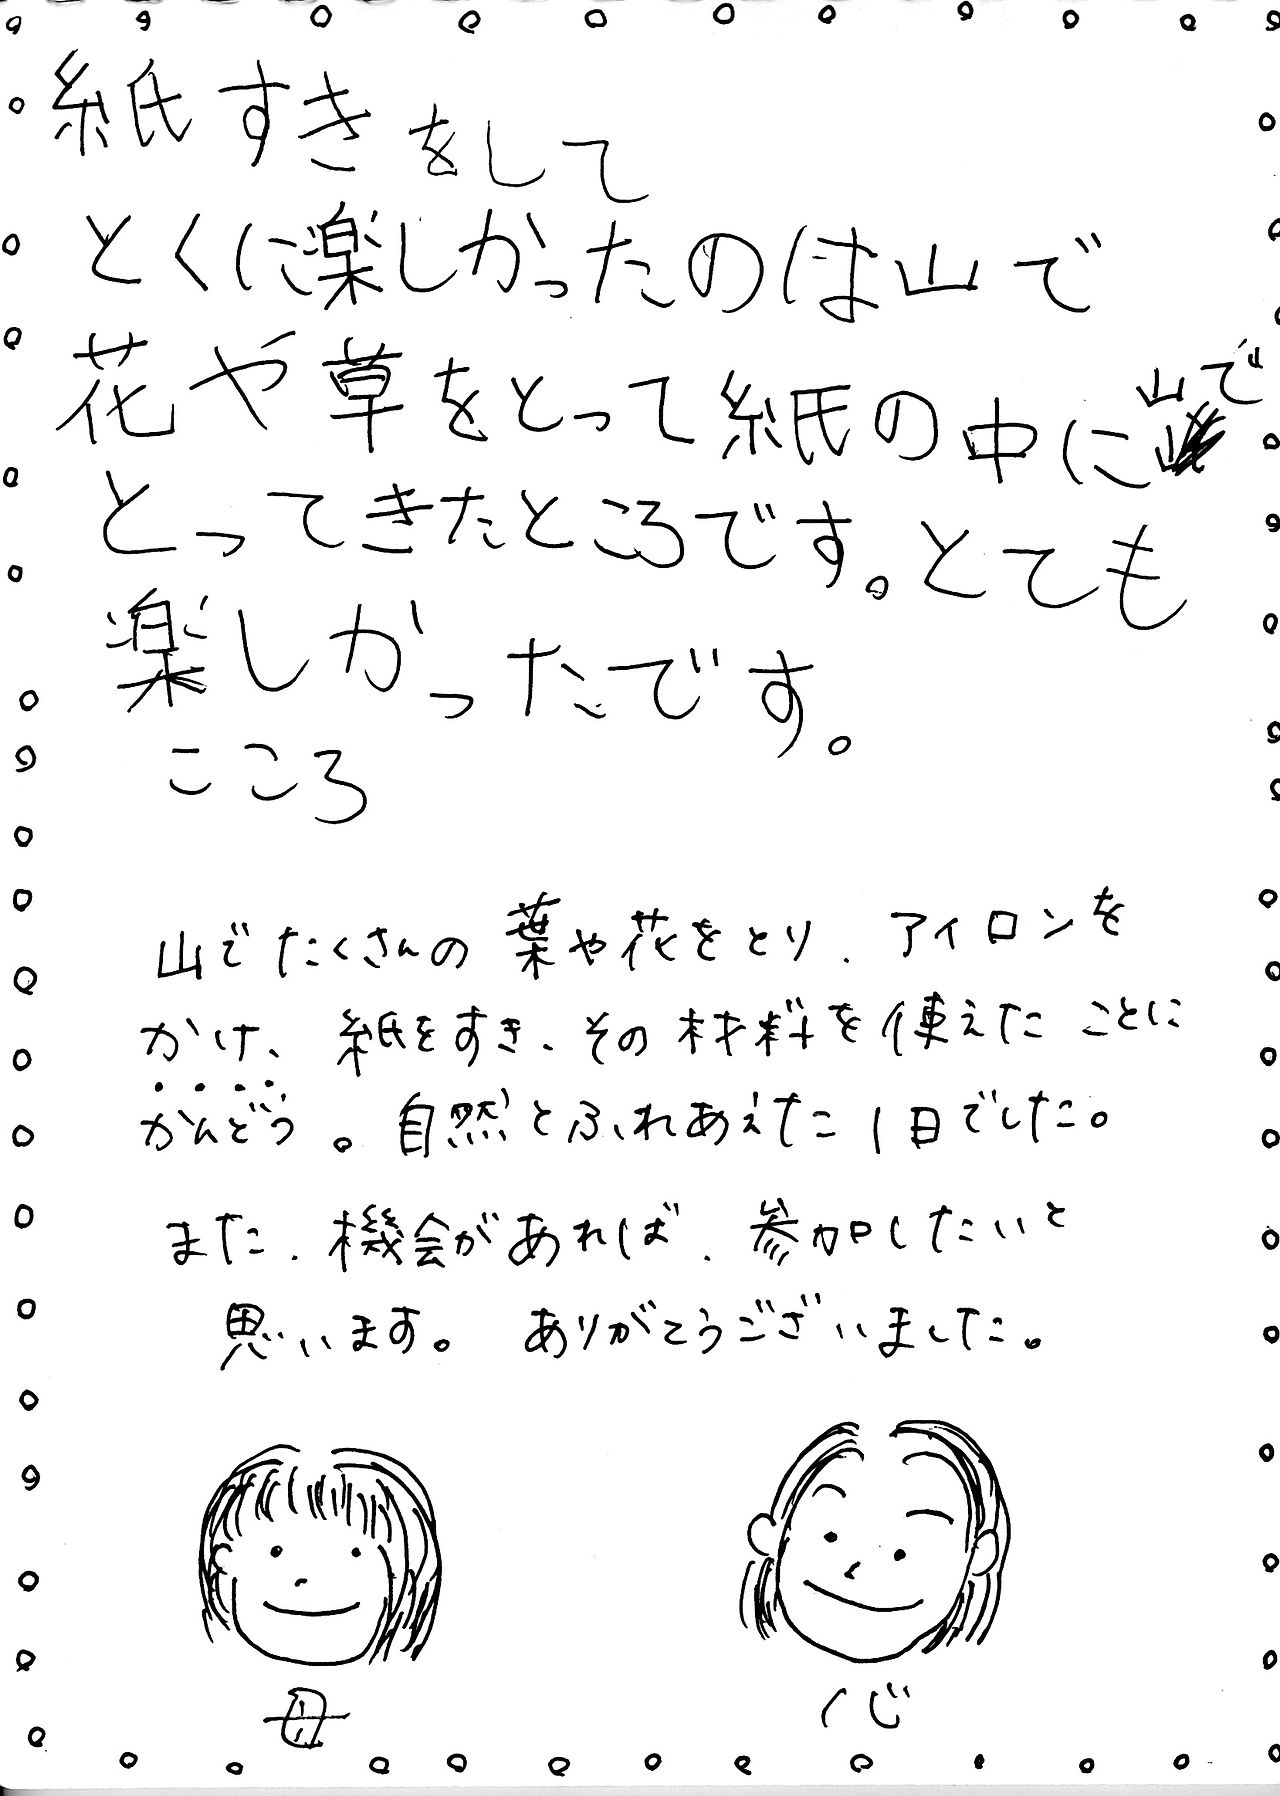 紙すきをして
とくに楽しかったのは山で
花や草をとって紙の中に山で
とってきたところです。とても
楽しかったです。
こころ
山でたくさんの葉や花をとり、アイロンを
かけ、紙をすき、その材料を使えたことに
かんどう。自然とふれあえた1日でした。
また、機会があれば、参加したいと
思います。ありがとうございました。
母
心